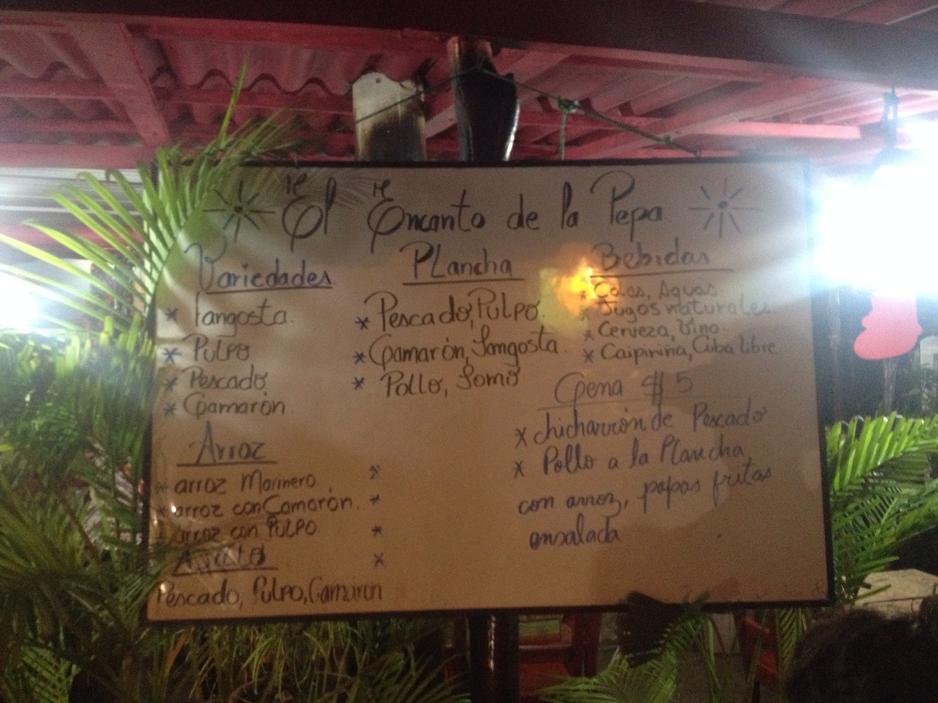 El Encanto de la Pepa
Variedades
* langosta
* Pulpo
* Pescado
* Camarón
Arroz
* arroz Marinero *
* arroz con Camarón. *
* arroz con Pulpo *
*
Pescado, Pulpo, Camaron
PLancha
* Pescado, Pulpo
* Camarón, Langosta
* Pollo, Lomo
Bebidas
* Colas, Aguas
* Jugos naturales
* Cerveza, Vino
* Caipiriña, Cuba libre
Cena $ 5
* chicharrón de Pescado
* Pollo a la Plancha
con arroz, papas fritas
ensalada